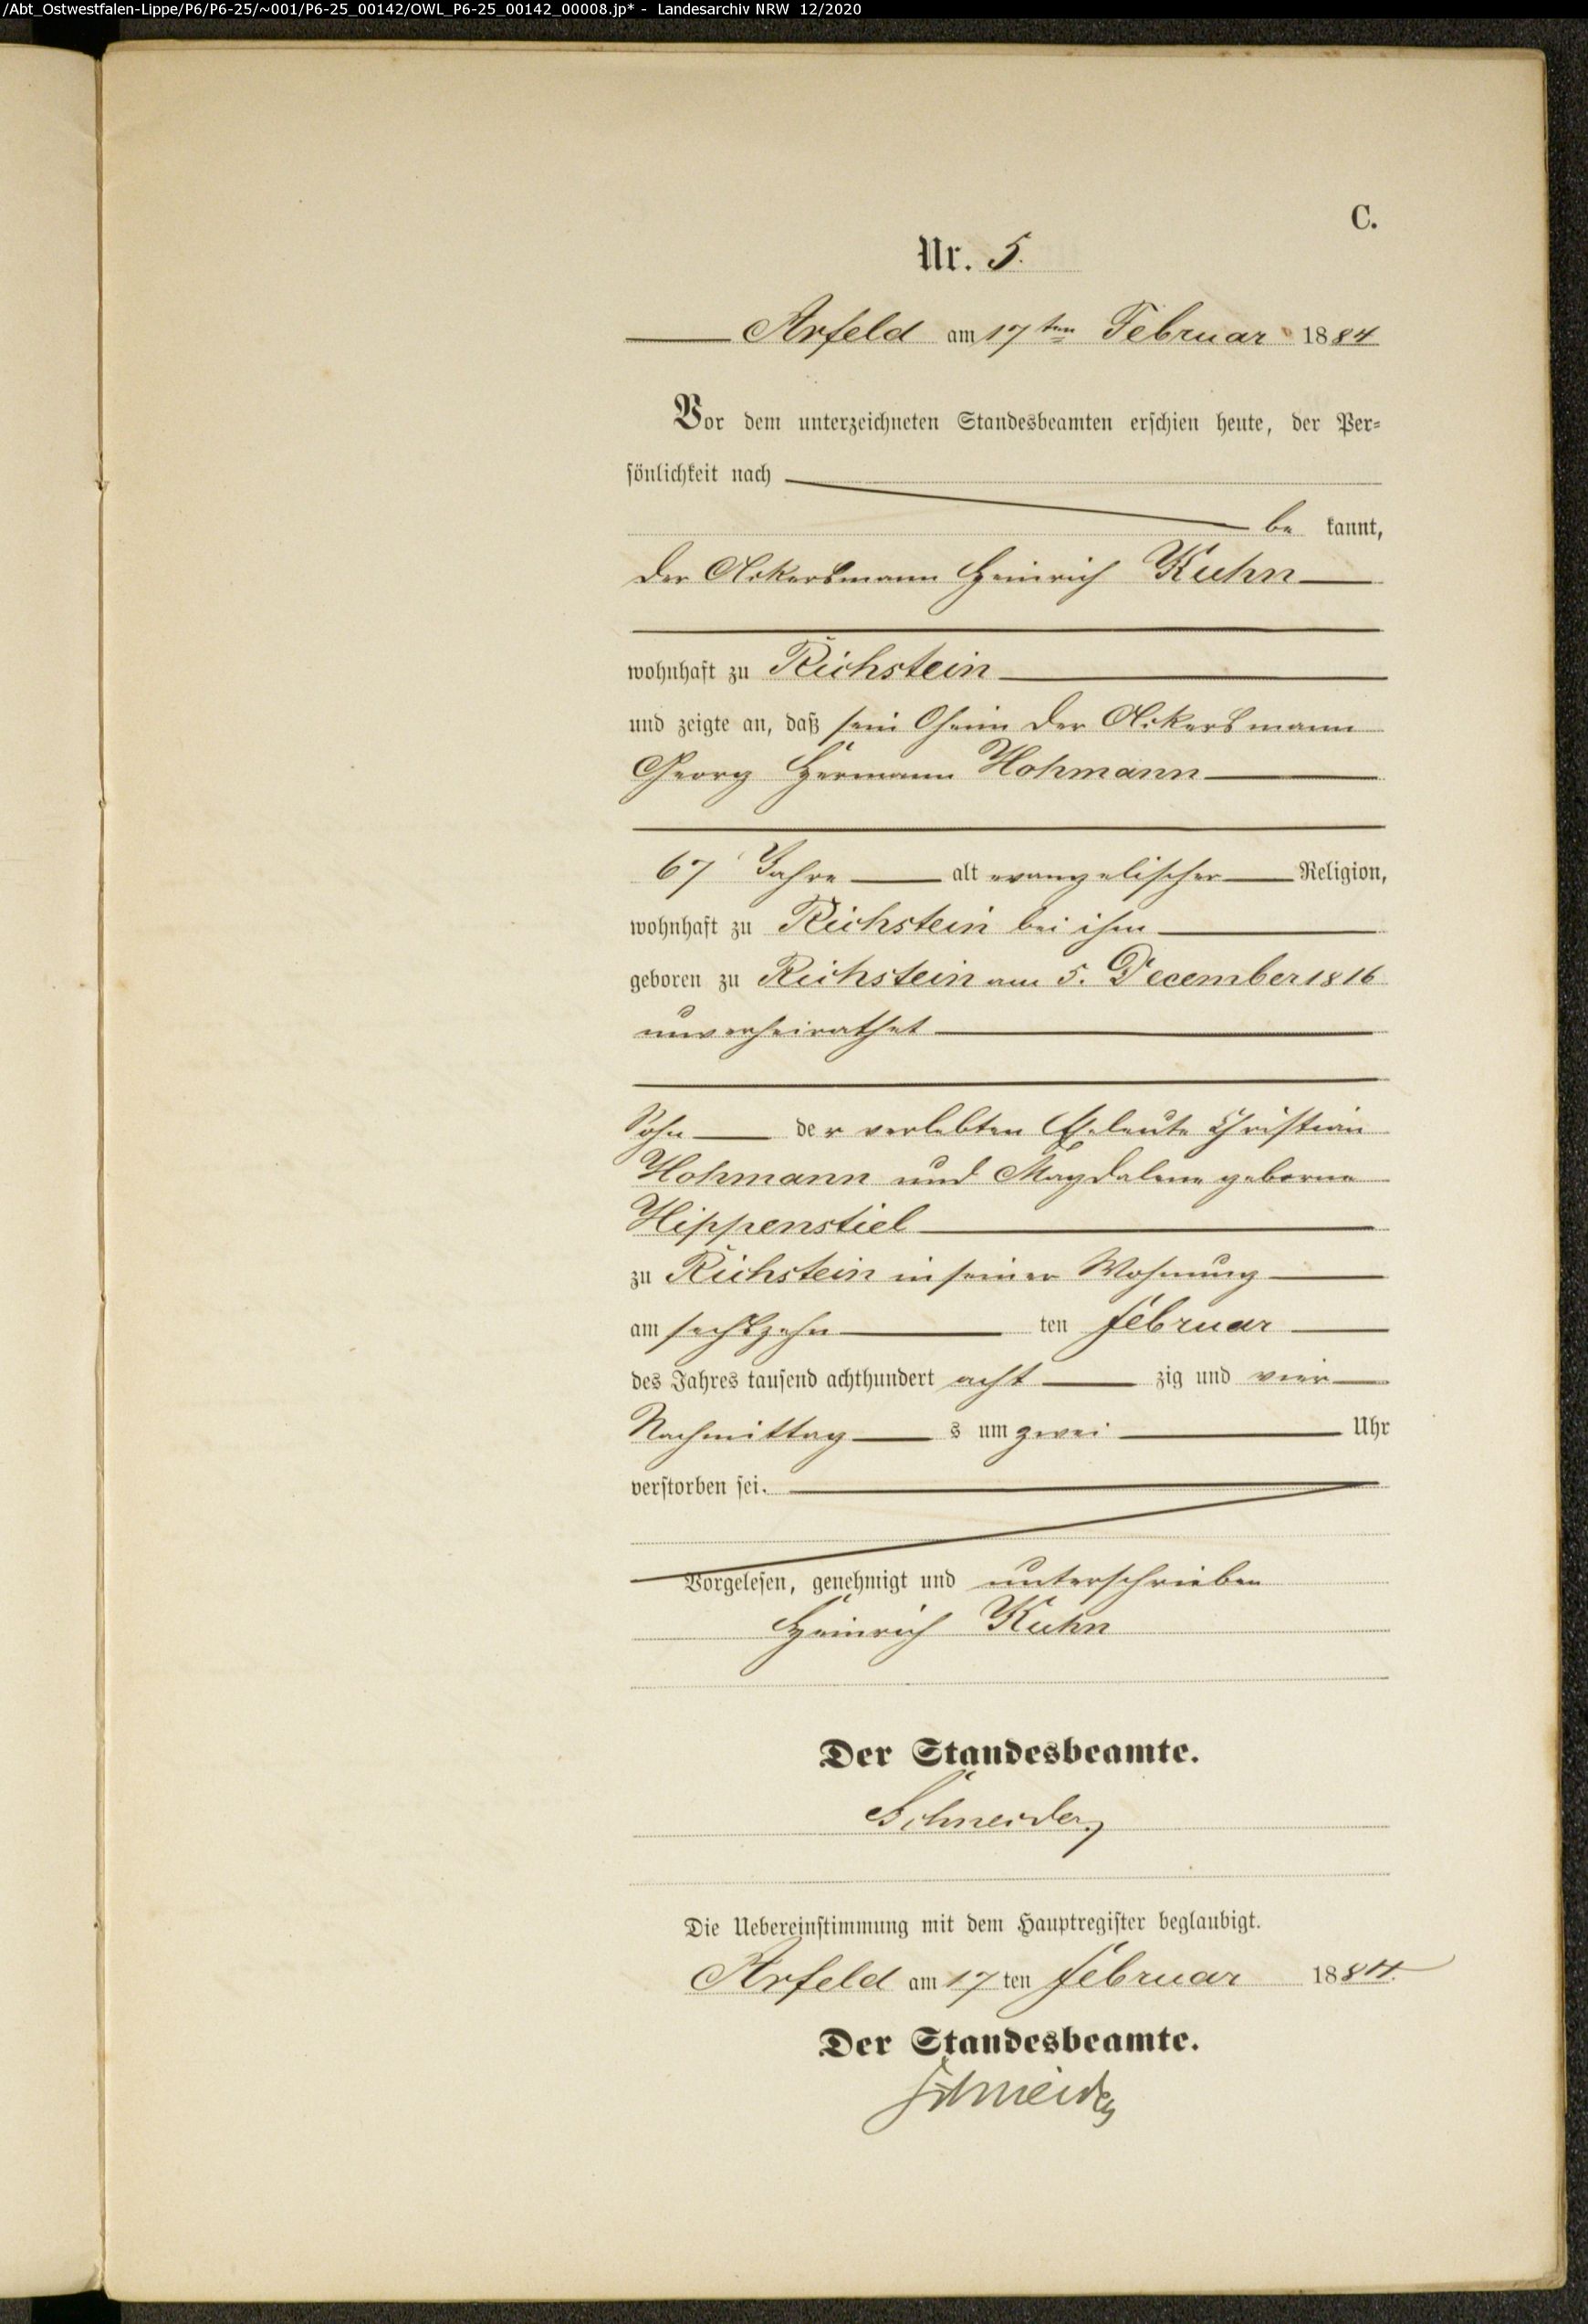 /Abt_Ostwestfalen-Lippe/P6/P6-25/~001/P6-25_00142/OWL_P6-25_00142_00008.jp* - Landesarchiv NRW 12/2020
C.
Nr. 5.
Arfeld am 17ten Februar 1884
Vor dem unterzeichneten Standesbeamten erschien heute, der Per-
sönlichkeit nach
be kannt,
der Ackersmann Heinrich Kuhn
wohnhaft zu Richstein
und zeigte an, daß sein Oheim der Ackersmann
Georg Hermann Hohmann
67 Jahre alt evangelischer Religion,
wohnhaft zu Richstein bei ihm
geboren zu Richstein am 5. December 1816
unverheirathet
Sohn der verlebten Eheleute Christian
Hohmann und Magdalene geborne
Hippenstiel
zu Richstein in seiner Wohnung
am sechszehn ten Februar
des Jahres tausend achthundert acht zig und vier
Nachmittag s um zwei Uhr
verstorben sei.
Vorgelesen, genehmigt und unterschrieben
Heinrich Kuhn
Der Standesbeamte.
Schneider
Die Uebereinstimmung mit dem Hauptregister beglaubigt.
Arfeld am 17 ten Februar 1884.
Der Standesbeamte.
Schneider